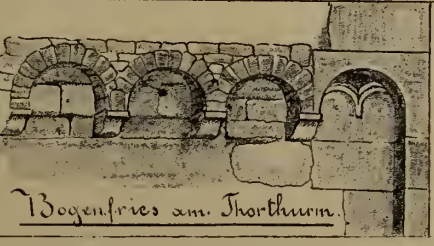 Bogenfries am. Thorthurm.